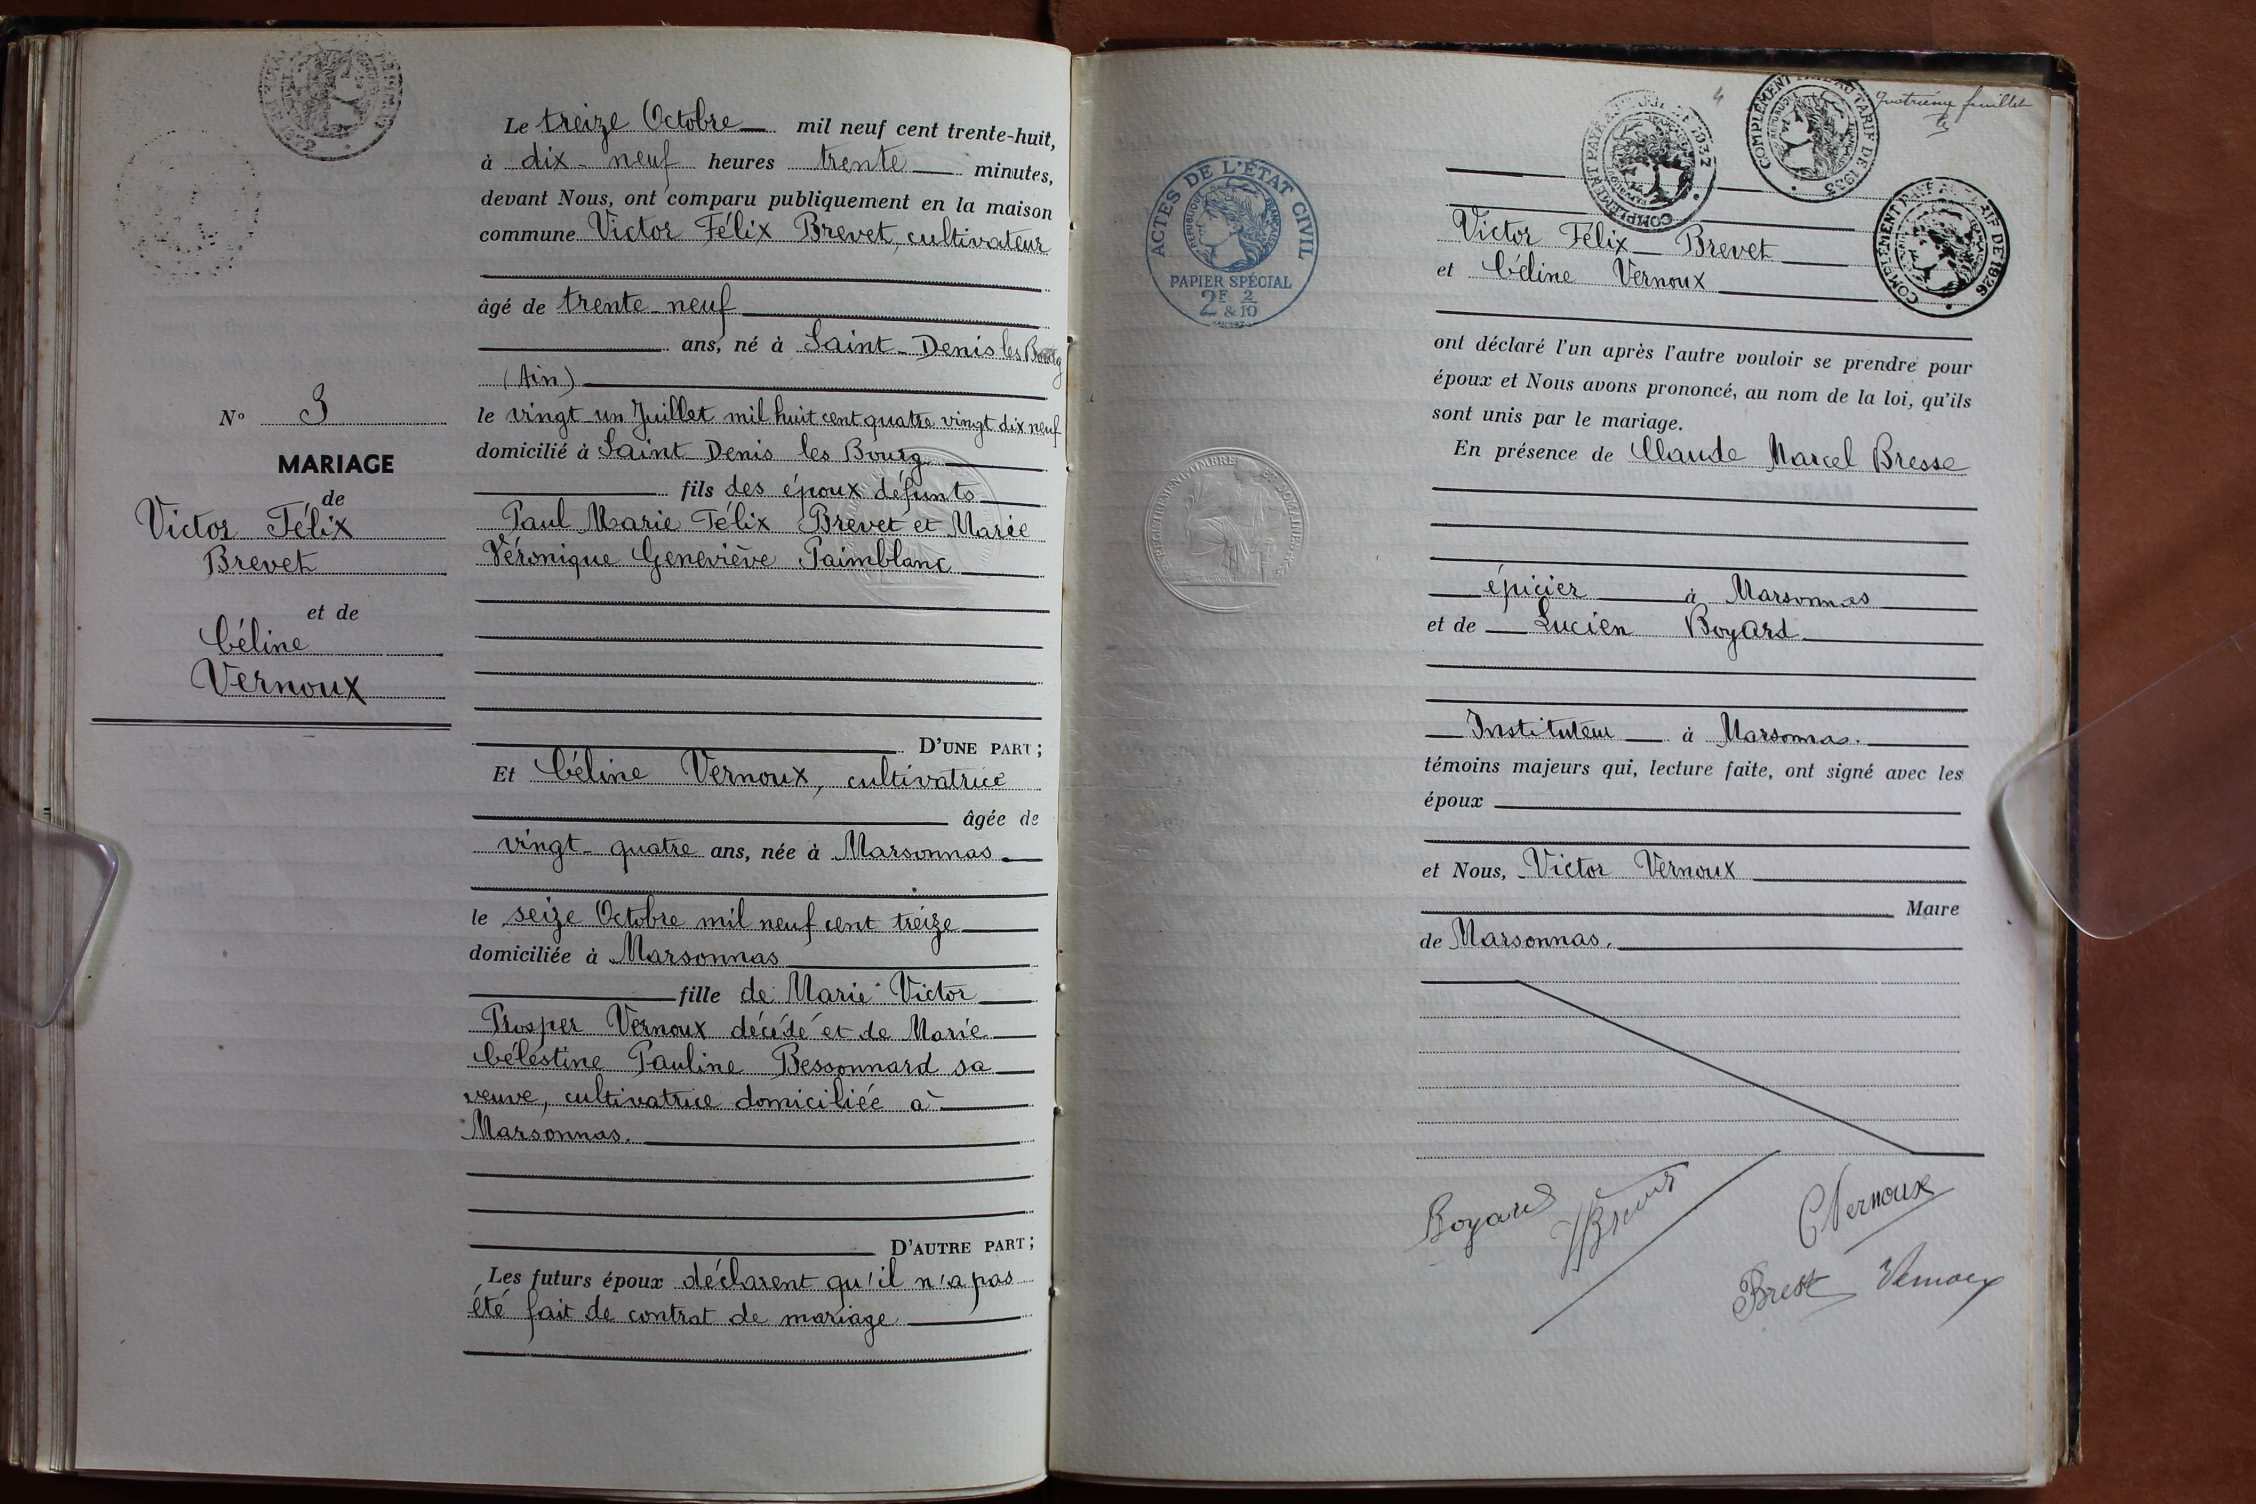 Le treize Octobre mil neuf cent trente-huit,
à dix-neuf heures trente minutes,
devant Nous, ont comparu publiquement en la maison
commune Victor Félix Brevet, cultivateur
âgé de trente-neuf
ans, né à Saint-Denis les Bourg
(Ain)
le vingt un Juillet mil huit cent quatre vingt dix neuf
domicilié à Saint-Denis les Bourg
fils des époux défunts
Paul Marie Félix Brevet et Marie
Véronique Geneviève Paimblanc
D'UNE PART ;
Et Céline Vernoux, cultivatrice
âgée de
vingt-quatre ans, née à Marsonnas
le seize Octobre mil neuf cent treize
domiciliée à Marsonnas
fille de Marie Victor
Prosper Vernoux décédé et de Marie
Célestine Pauline Bessonnard sa
veuve, cultivatrice domiciliée à
Marsonnas.
D'AUTRE PART ;
Les futurs époux déclarent qu'il n'a pas
été fait de contrat de mariage
N° 3
MARIAGE
de
Victor Félix
Brevet
et de
Céline
Vernoux
4
Quatrième feuillet
COMPLÉMENT PAYÉ AU TARIF DE 1933
COMPLÉMENT PAYÉ AU TARIF DE 1926
ACTES DE L'ÉTAT CIVIL
RÉPUBLIQUE FRANÇAISE
PAPIER SPÉCIAL
2F & 2/10
Victor Félix Brevet
et Céline Vernoux
ont déclaré l'un après l'autre vouloir se prendre pour
époux et Nous avons prononcé, au nom de la loi, qu'ils
sont unis par le mariage.
En présence de Claude Marcel Bresse
épicier à Marsonnas
et de Lucien Boyard
Instituteur à Marsonnas.
témoins majeurs qui, lecture faite, ont signé avec les
époux
et Nous, Victor Vernoux
Maire
de Marsonnas.
Boyard
VBrevet
CVernoux
Vernoux